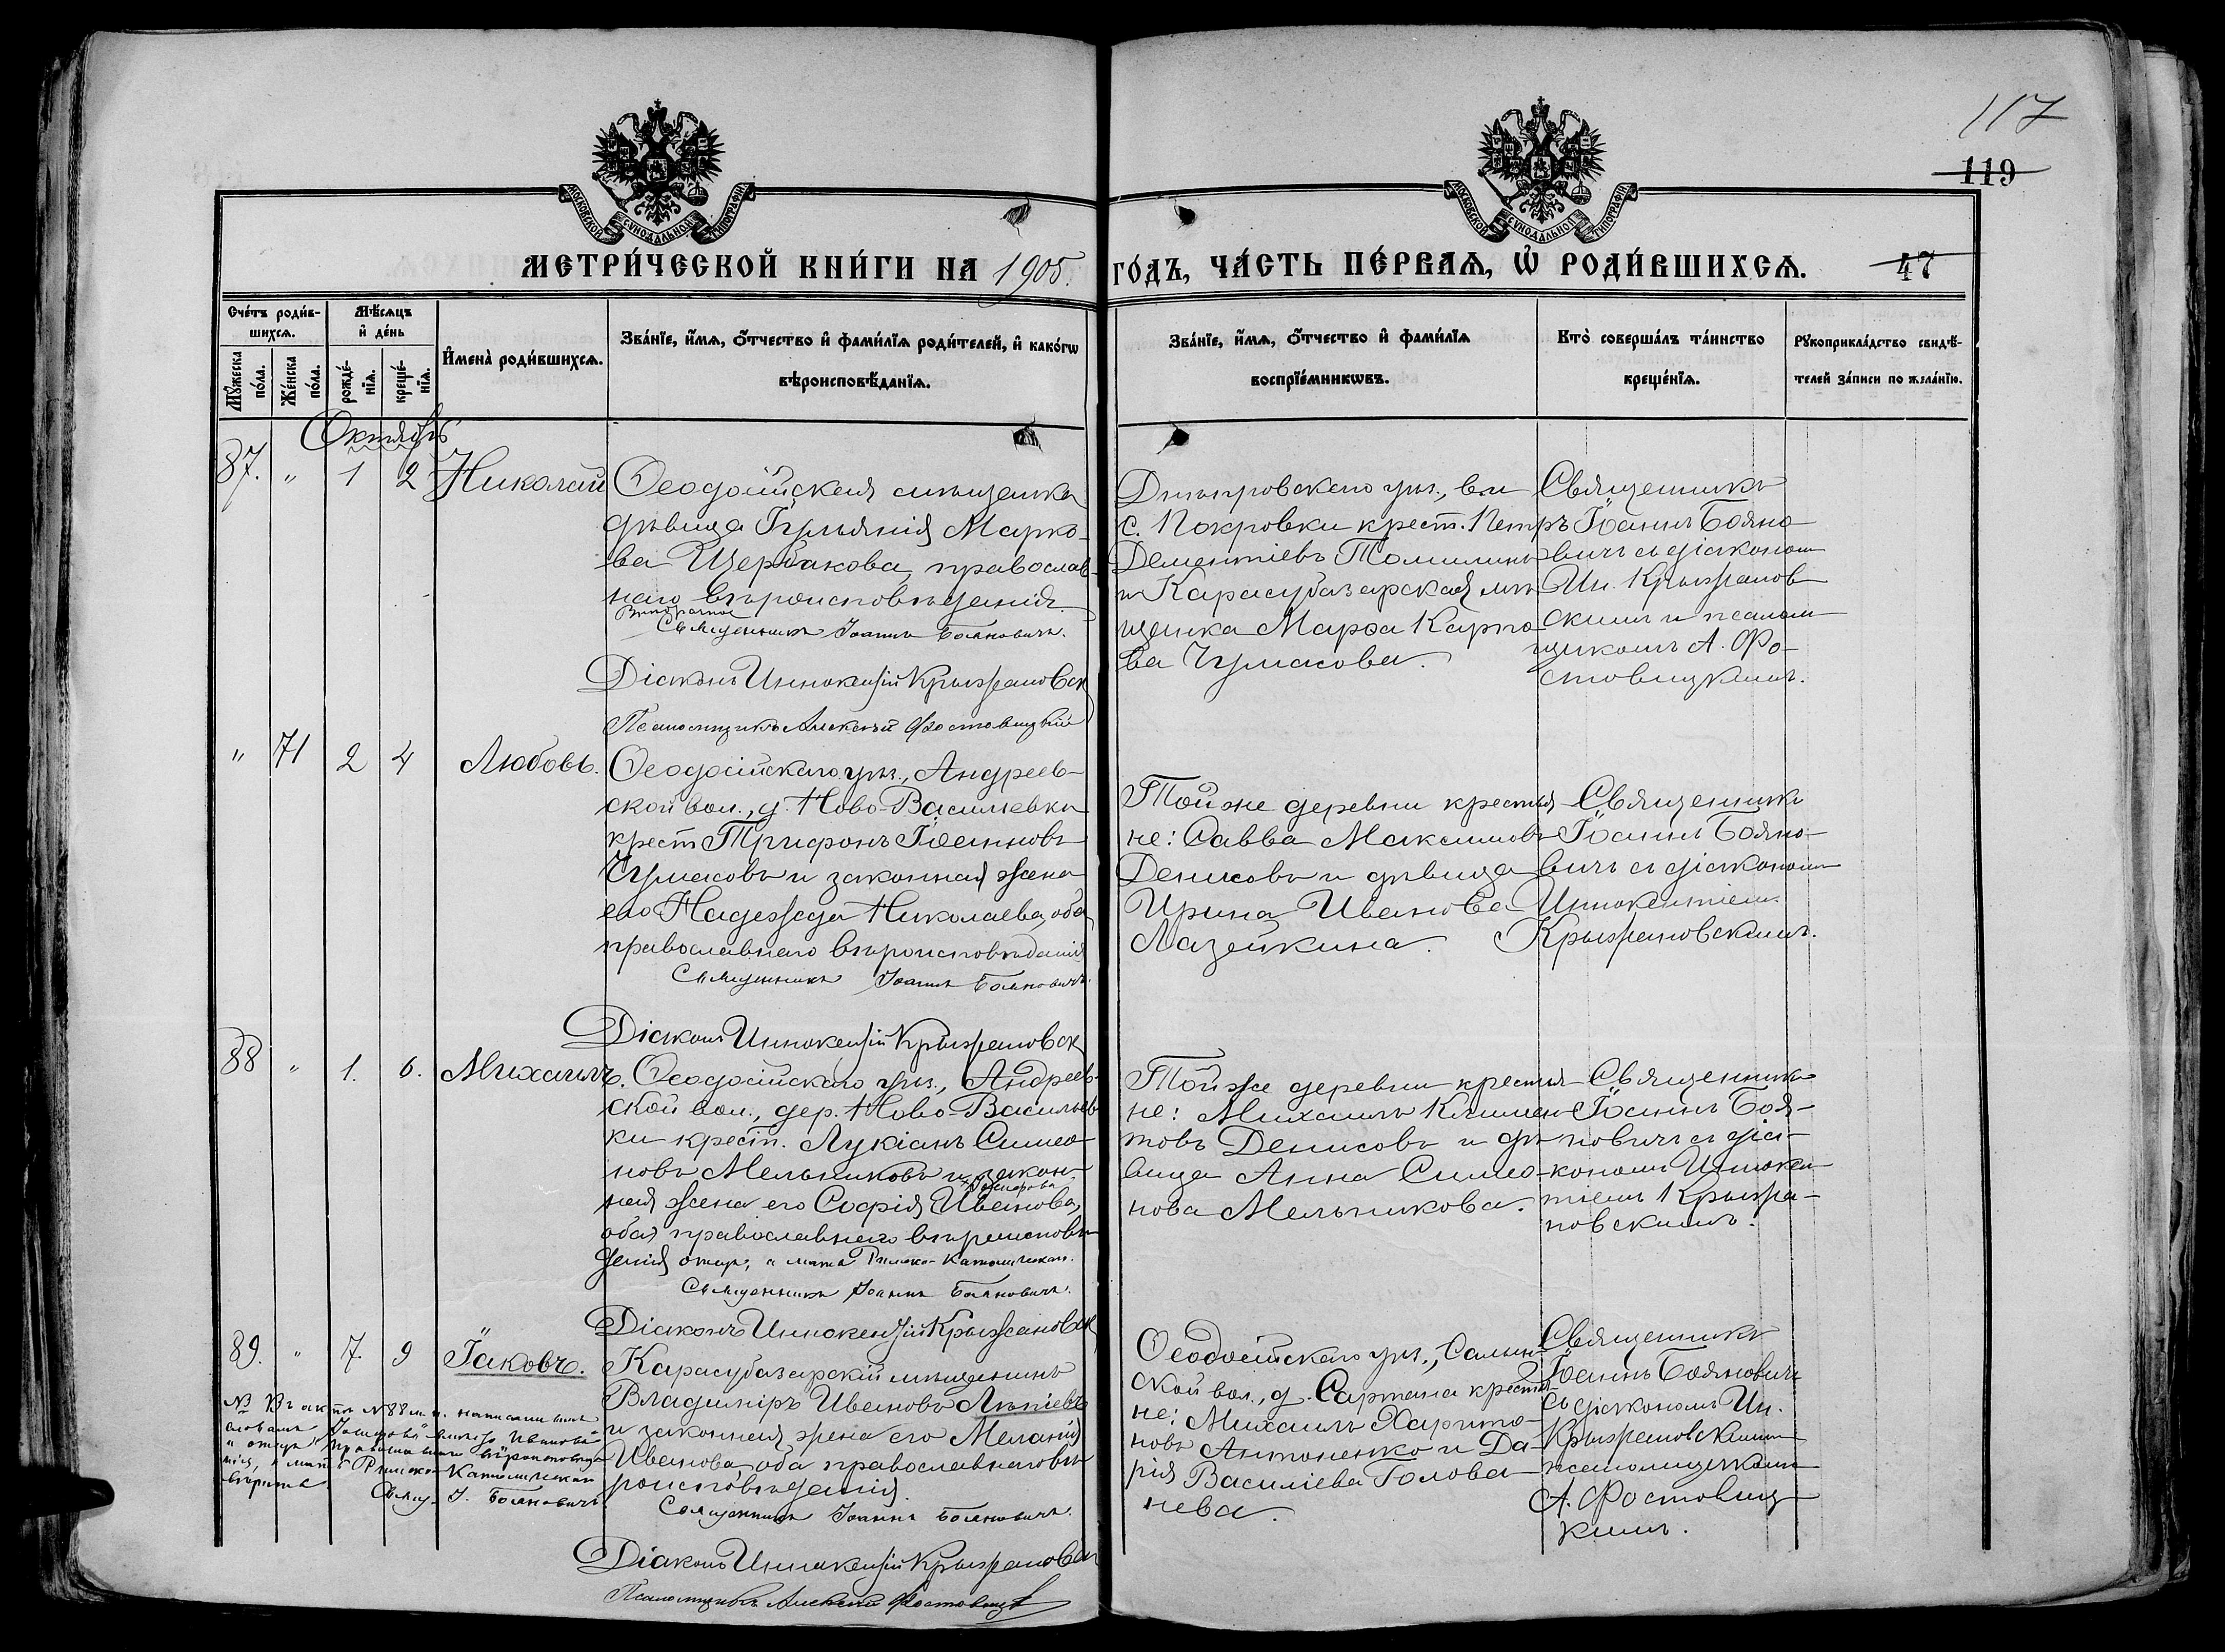 117
119
47
МОСКОВСКОЙ СѴНОДАЛЬНОЙ ТИПОГРАФІИ
МОСКОВСКОЙ СѴНОДАЛЬНОЙ ТИПОГРАФІИ
МЕТРИ́ЧЕСКОЙ КНИ́ГИ НА 1905.
ГО́ДЪ, ЧА́СТЬ ПЕ́РВАѦ, Ѡ҆ РОДИ́ВШИХСѦ.
Сче́тъ роди́в-
шихсѧ.
Мꙋ́жеска по́ла.
Же́нска по́ла.
Мѣ́сѧцъ
и҆ де́нь
рожде́-
нїѧ.
креще́-
нїѧ.
И҆мена̀ роди́вшихсѧ.
Зва́нїе, и҆́мѧ, ѻ҆́тчество и҆ фами́лїѧ роди́телей, и҆ како́гѡ
вѣроисповѣ́данїѧ.
Зва́нїе, и҆́мѧ, ѻ҆́тчество и҆ фами́лїѧ
воспрїе́мникѡвъ.
Кто̀ соверша́лъ та́инство
креще́нїѧ.
Рꙋкоприкла́дство свидѣ́-
телей за́писи по жела́нїю.
Октябрь
87. " 1 2 Николай
Ѳеодосійская мѣщанка
дѣвица Іуліанія Марко-
ва Щербакова, православ-
наго вѣроисповѣданія.
Священникъ Іоаннъ Бояновичъ.
Діаконъ Иннокентій Крыжановск
Псаломщикъ Алексѣй Фостовицкій
Днѣпровскаго уѣз.,
с. Покровки крест. Петръ
Дементіевъ Томилинъ
и Карасубазарская мѣ-
щанка Марѳа Карпо-
ва Чумакова.
Священникъ
Іоаннъ Бояно-
вичъ съ діакономъ
Ин. Крыжанов-
скимъ и псалом-
щикомъ А. Фо-
стовицкимъ.
" 71 2 4 Любовь.
Ѳеодосійскаго уѣз., Андреев-
ской вол., д. Ново-Василіевки
крест. Трифонъ Іоанновъ
Чумаковъ и законная жена
его Надежда Николаева, оба
православнаго вѣроисповѣданія
Священникъ Іоаннъ Бояновичъ.
Діаконъ Иннокентій Крыжановск
Той же деревни крестья-
не: Савва Максимовъ
Денисовъ и дѣвица
Ирина Иванова
Лазейкина.
Священникъ
Іоаннъ Бояно-
вичъ съ діакономъ
Иннокентіемъ
Крыжановскимъ.
88 " 1. 6. Михаилъ.
Ѳеодосійскаго уѣз., Андреев-
ской вол., дер. Ново-Васильев-
ки крест. Лукіанъ Симео-
новъ Мельниковъ и закон-
ная жена его Софія Иванова,
оба православнаго вѣроисповѣ-
данія отецъ, а мать Римско-Католическаго.
Священникъ Іоаннъ Бояновичъ.
Діаконъ Иннокентій Крыжановск
Той же деревни крестья-
не: Михаилъ Климен-
товъ Денисовъ и дѣ-
вица Анна Симео-
нова Мельникова.
Священникъ
Іоаннъ Боя-
новичъ съ діа-
кономъ Иннокен-
тіемъ Крыжа-
новскимъ.
89. " 7. 9 Іаковъ.
Карасубазарскій мѣщанинъ
Владиміръ Ивановъ
и законная жена его Меланія
Иванова, оба православнаго вѣ-
роисповѣданія.
Священникъ Іоаннъ Бояновичъ.
Діаконъ Иннокентій Крыжановск
Псаломщикъ Алексѣй Фостовицк
Ѳеодосійскаго уѣз., Салын-
ской вол., д. Сартана крестья-
не: Михаилъ Харито-
новъ Антоненко и Да-
рія Василіева Голова-
нева.
Священникъ
Іоаннъ Бояновичъ
съ діакономъ Ин.
Крыжановскимъ
псаломщикомъ
А. Фостовиц-
кимъ.
№ Въ актѣ №88 м. п. написаны
вмѣсто Иванова
и отецъ православнаго вѣроисповѣда-
нія, а мать Римско-Католическаго
Свящ. І. Бояновичъ